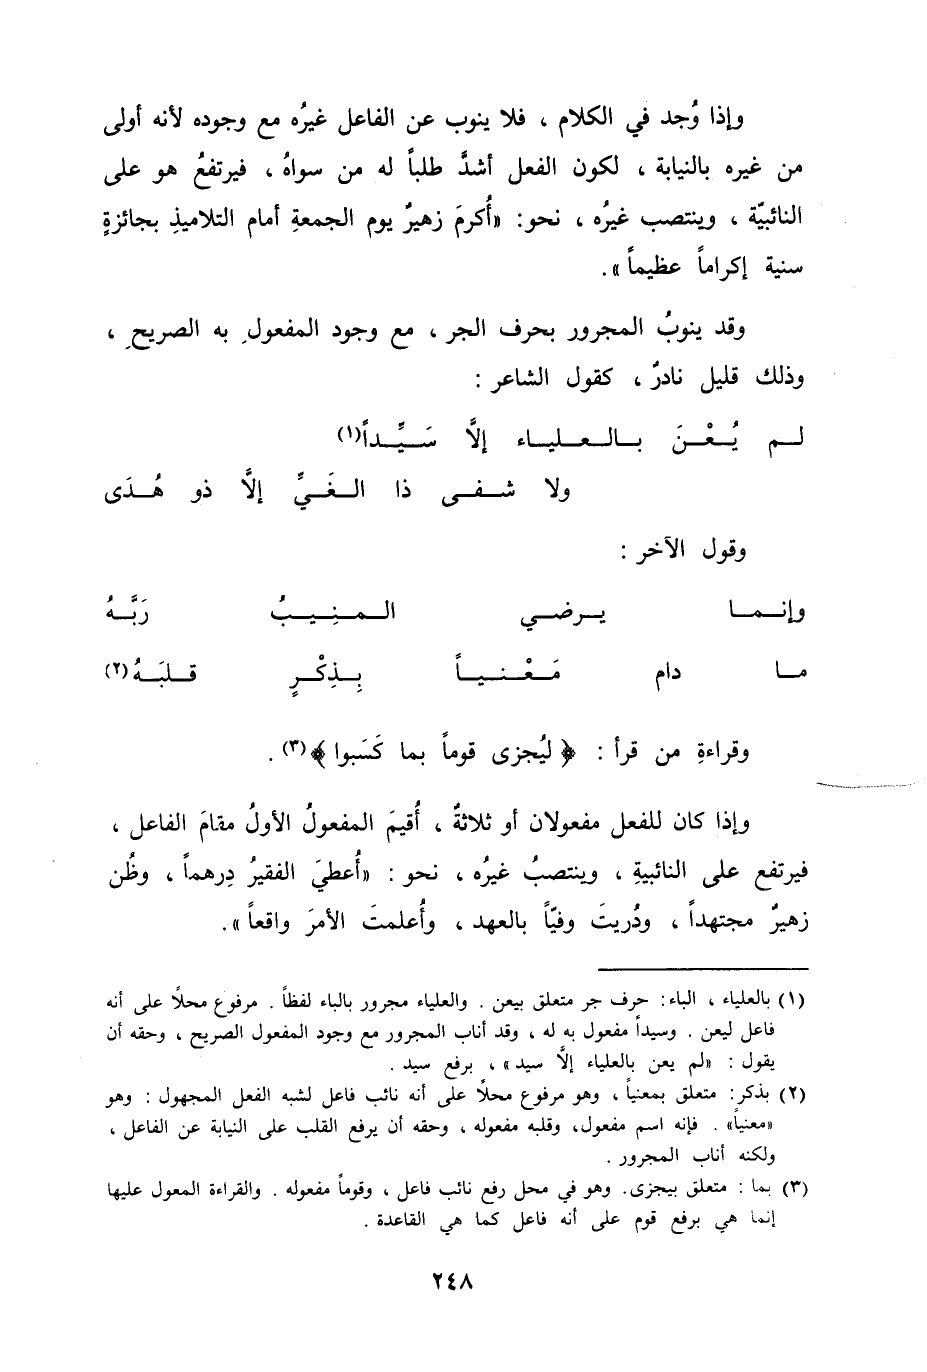 وإذا وُجد في الكلام ، فلا ينوب عن الفاعل غيرُه مع وجوده لأنه أولى
من غيره بالنيابة ، لكون الفعل أشدَّ طلباً له من سواهُ ، فيرتفعُ هو على
النائبيّة ، وينتصب غيرُه ، نحو: «أُكرمَ زهيرٌ يوم الجمعةِ أمام التلاميذِ بجائزةٍ
سنية إكراماً عظيماً».
وقد ينوبُ المجرور بحرف الجر ، مع وجود المفعولِ به الصريحِ ،
وذلك قليل نادرٌ ، كقول الشاعر :
لـم يُـعْـنَ بـالـعـلـيـاء إلَّا سَـيِّـداً(١)
ولا شـفـى ذا الـغَـيِّ إلَّا ذو هُـدَى
وقول الآخر :
وإنـمـا يـرضـي الـمـنِـيـبُ رَبَّـهُ
مـا دام مَـعْـنـيـاً بِـذِكْـرٍ قـلبَـهُ(٢)
وقراءةِ من قرأ : ﴿ لِيُجزى قوماً بما كَسَبوا ﴾(٣) .
وإذا كان للفعل مفعولان أو ثلاثةٌ ، أُقيمَ المفعولُ الأولُ مقامَ الفاعل ،
فيرتفع على النائبيةِ ، وينتصبُ غيرُه ، نحو : «أُعطيَ الفقيرُ دِرهماً ، وظُن
زهيرٌ مجتهداً ، ودُريتَ وفيّاً بالعهد ، وأُعلمتَ الأمرَ واقعاً».
(١) بالعلياء ، الباء: حرف جر متعلق بيعن . والعلياء مجرور بالباء لفظاً . مرفوع محلاً على أنه
فاعل ليعن . وسيداً مفعول به له ، وقد أناب المجرور مع وجود المفعول الصريح ، وحقه أن
يقول : «لم يعن بالعلياء إلَّا سيد» ، برفع سيد .
(٢) بذكر: متعلق بمعنياً ، وهو مرفوع محلًا على أنه نائب فاعل لشبه الفعل المجهول : وهو
«معنياً» . فإنه اسم مفعول، وقلبه مفعوله ، وحقه أن يرفع القلب على النيابة عن الفاعل ،
ولكنه أناب المجرور .
(٣) بما : متعلق بيجزى. وهو في محل رفع نائب فاعل ، وقوماً مفعوله . والقراءة المعول عليها
إنما هي برفع قوم على أنه فاعل كما هي القاعدة .
٢٤٨